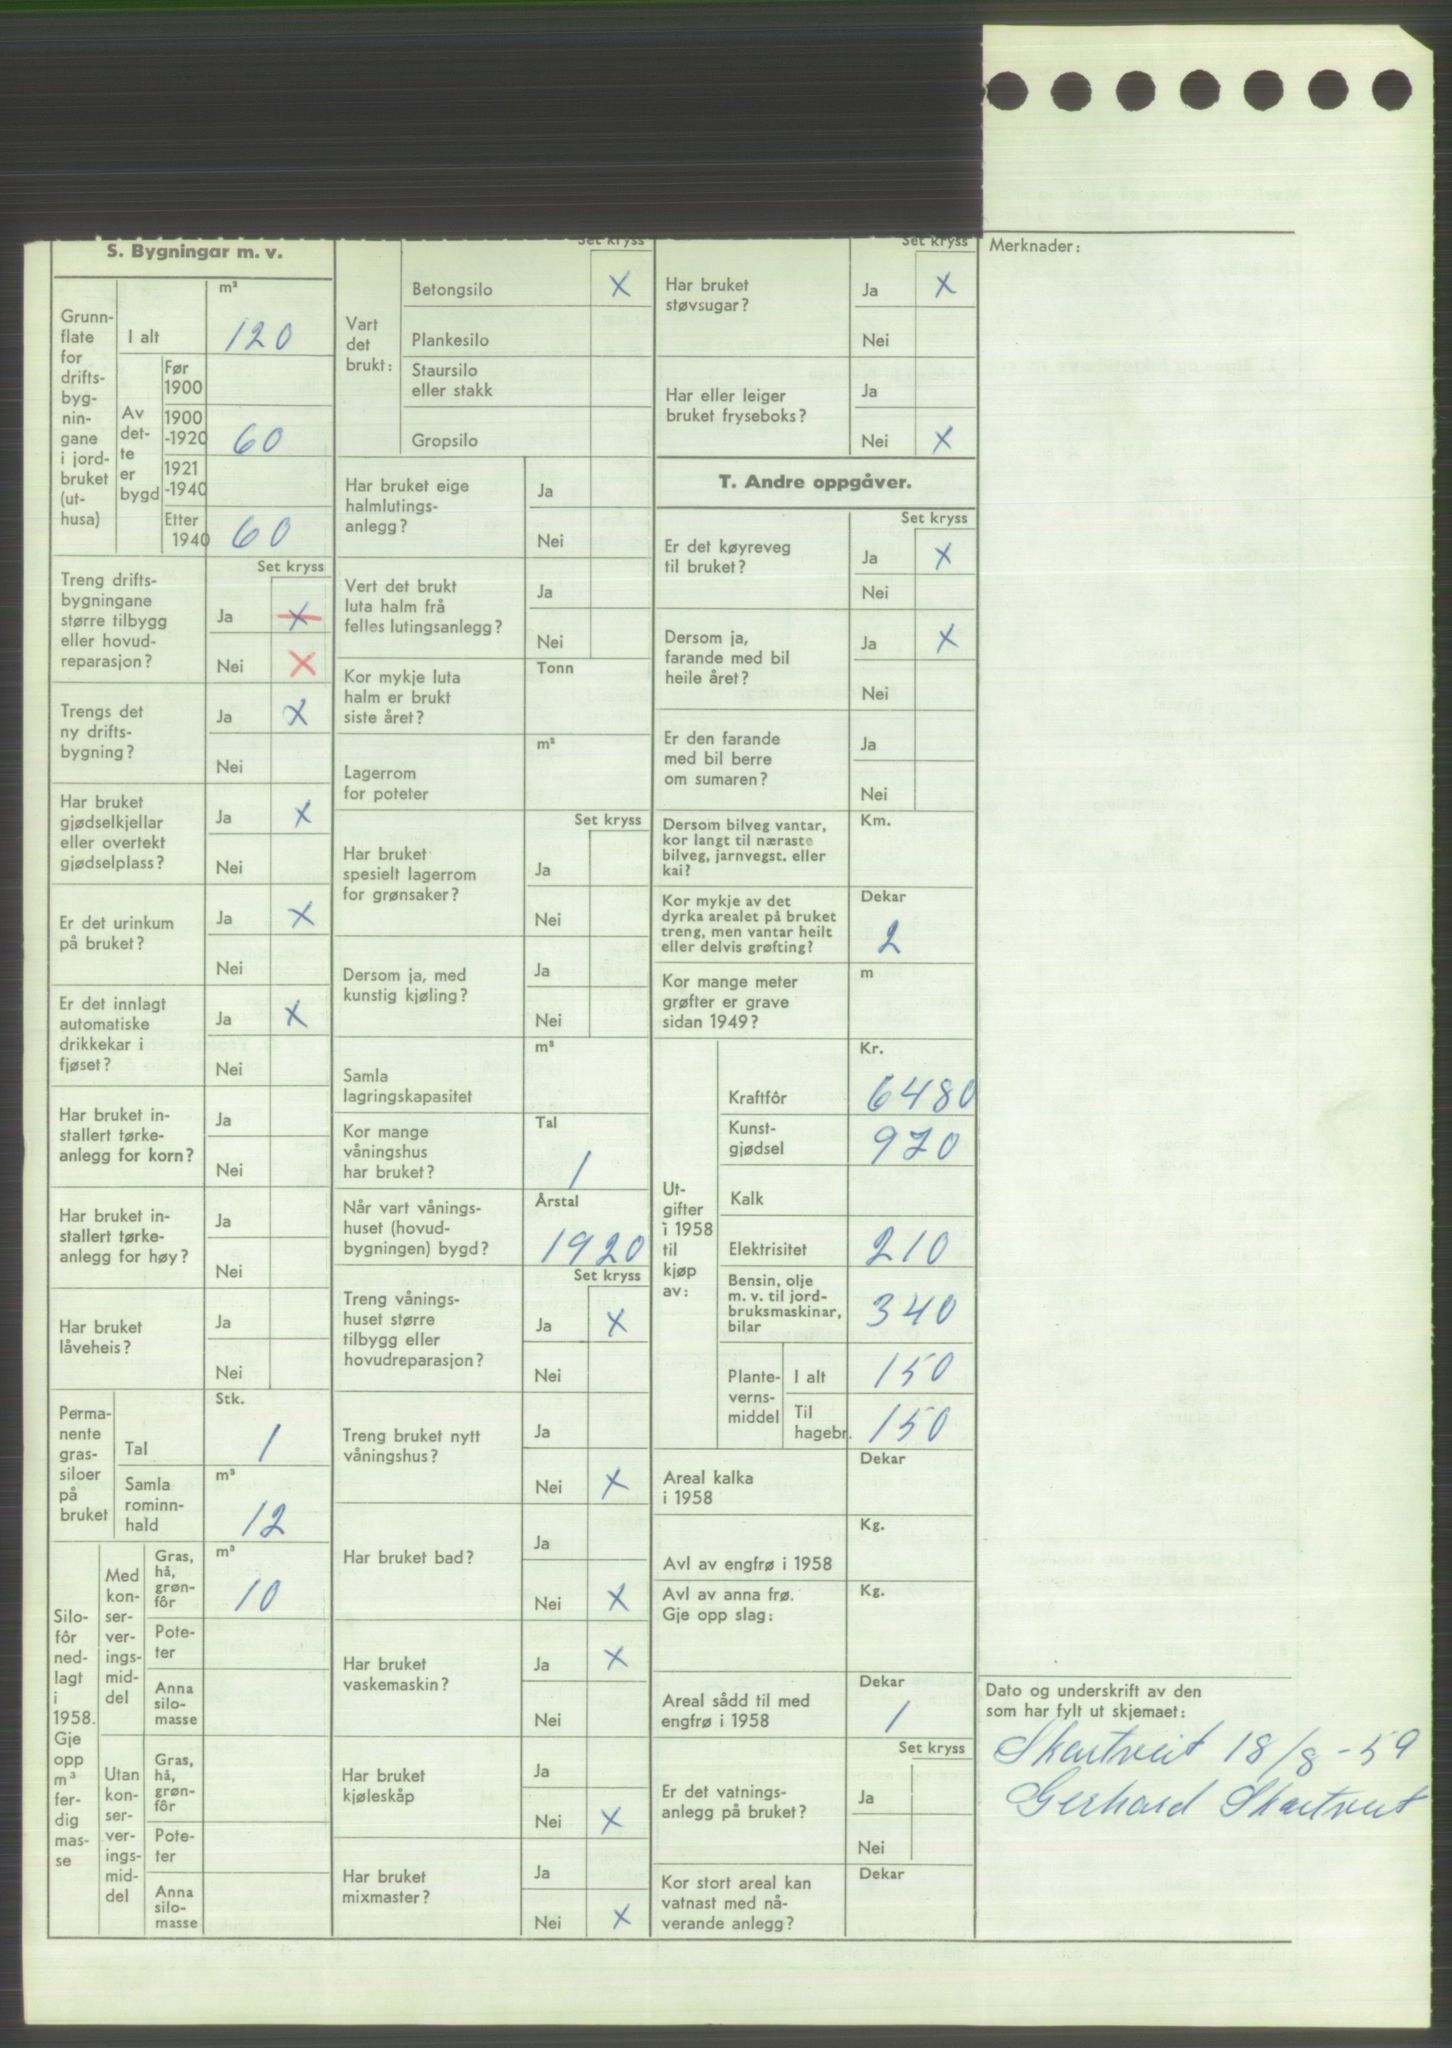 S. Bygningar m. v.
Grunn-
flate
for
drifts-
byg-
nin-
gane
i jord-
bruket
(ut-
husa)
m²
I alt
120
Av
det-
te
er
bygd
Før
1900
1900
-1920
60
1921
-1940
Etter
1940
60
Set kryss
Treng drifts-
bygningane
større tilbygg
eller hovud-
reparasjon?
Ja
X
Nei
X
Trengs det
ny drifts-
bygning?
Ja
X
Nei
Har bruket
gjødselkjellar
eller overtekt
gjødselplass?
Ja
X
Nei
Er det urinkum
på bruket?
Ja
X
Nei
Er det innlagt
automatiske
drikkekar i
fjøset?
Ja
X
Nei
Har bruket in-
stallert tørke-
anlegg for korn?
Ja
Nei
Har bruket in-
stallert tørke-
anlegg for høy?
Ja
Nei
Har bruket
låveheis?
Ja
Nei
Perma-
nente
gras-
siloer
på
bruket
Stk.
Tal
1
m³
Samla
rominn-
hald
12
Silo-
fôr
ned-
lagt
i
1958.
Gje
opp
m³
fer-
dig
mas-
se
Med
kon-
ser-
ver-
ings-
mid-
del
m³
Gras,
hå,
grøn-
fôr
10
Pote-
ter
Anna
silo-
masse
Utan
kon-
ser-
ver-
ings-
mid-
del
Gras,
hå,
grøn-
fôr
Pote-
ter
Anna
silo-
masse
Set kryss
Vart
det
brukt:
Betongsilo
X
Plankesilo
Staursilo
eller stakk
Gropsilo
Har bruket eige
halmlutings-
anlegg?
Ja
Nei
Vert det brukt
luta halm frå
felles lutingsanlegg?
Ja
Nei
Kor mykje luta
halm er brukt
siste året?
Tonn
m²
Lagerrom
for poteter
Set kryss
Har bruket
spesielt lagerrom
for grønsaker?
Ja
Nei
Dersom ja, med
kunstig kjøling?
Ja
Nei
m³
Samla
lagringskapasitet
Kor mange
våningshus
har bruket?
Tal
1
Når vart vånings-
huset (hovud-
bygningen) bygd?
Årstal
1920
Set kryss
Treng vånings-
huset større
tilbygg eller
hovudreparasjon?
Ja
X
Nei
Treng bruket nytt
våningshus?
Ja
Nei
X
Har bruket bad?
Ja
Nei
X
Har bruket
vaskemaskin?
Ja
X
Nei
Har bruket
kjøleskåp
Ja
Nei
X
Har bruket
mixmaster?
Ja
Nei
X
Set kryss
Har bruket
støvsugar?
Ja
X
Nei
Har eller leiger
bruket fryseboks?
Ja
Nei
X
T. Andre oppgåver.
Set kryss
Er det køyreveg
til bruket?
Ja
X
Nei
Dersom ja,
farande med bil
heile året?
Ja
X
Nei
Er den farande
med bil berre
om sumaren?
Ja
Nei
Dersom bilveg vantar,
kor langt til næraste
bilveg, jarnvegst. eller
kai?
Km.
Kor mykje av det
dyrka arealet på bruket
treng, men vantar heilt
eller delvis grøfting?
Dekar
2
Kor mange meter
grøfter er grave
sidan 1949?
m
Ut-
gifter
i 1958
til
kjøp
av:
Kr.
Kraftfôr
6480
Kunst-
gjødsel
970
Kalk
Elektrisitet
210
Bensin, olje
m. v. til jord-
bruksmaskinar,
bilar
340
Plante-
verns-
middel
I alt
150
Til
hagebr.
150
Areal kalka
i 1958
Dekar
Kg.
Avl av engfrø i 1958
Avl av anna frø.
Gje opp slag:
Kg.
Areal sådd til med
engfrø i 1958
Dekar
1
Set kryss
Er det vatnings-
anlegg på bruket?
Ja
Nei
Kor stort areal kan
vatnast med nå-
verande anlegg?
Dekar
Merknader:
Dato og underskrift av den
som har fylt ut skjemaet:
Skartveit 18/8-59
Gerhard Skartveit